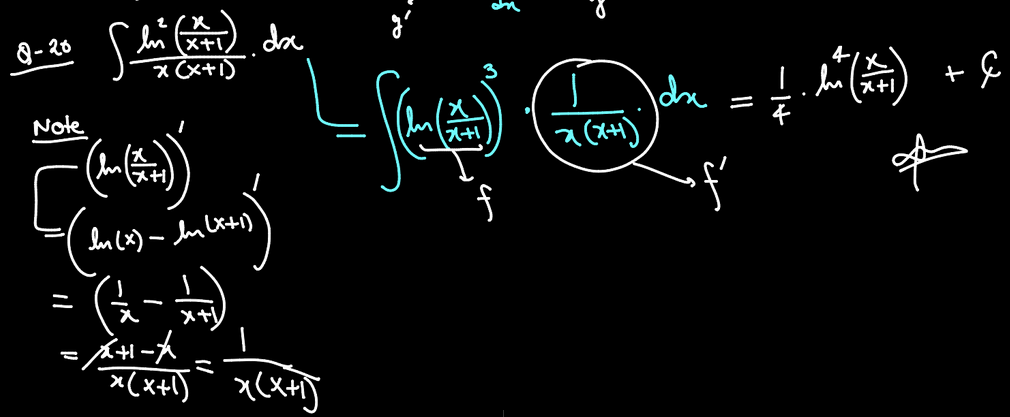 y' dx y
Q-20 ∫ ln²(x/(x+1)) / (x(x+1)) · dx
= ∫ (ln(x/(x+1)))³ · 1/(x(x+1)) · dx = 1/4 · ln⁴(x/(x+1)) + C
f f'
Note
(ln(x/(x+1)))'
= (ln(x) - ln(x+1))'
= (1/x - 1/(x+1))
= (x+1-x)/(x(x+1)) = 1/(x(x+1))